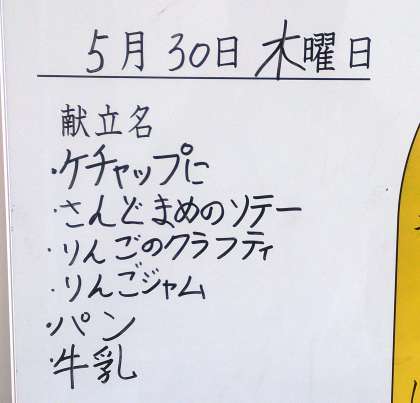 5月30日 木曜日
献立名
・ケチャップに
・さんどまめのソテー
・りんごのクラフティ
・りんごジャム
・パン
・牛乳